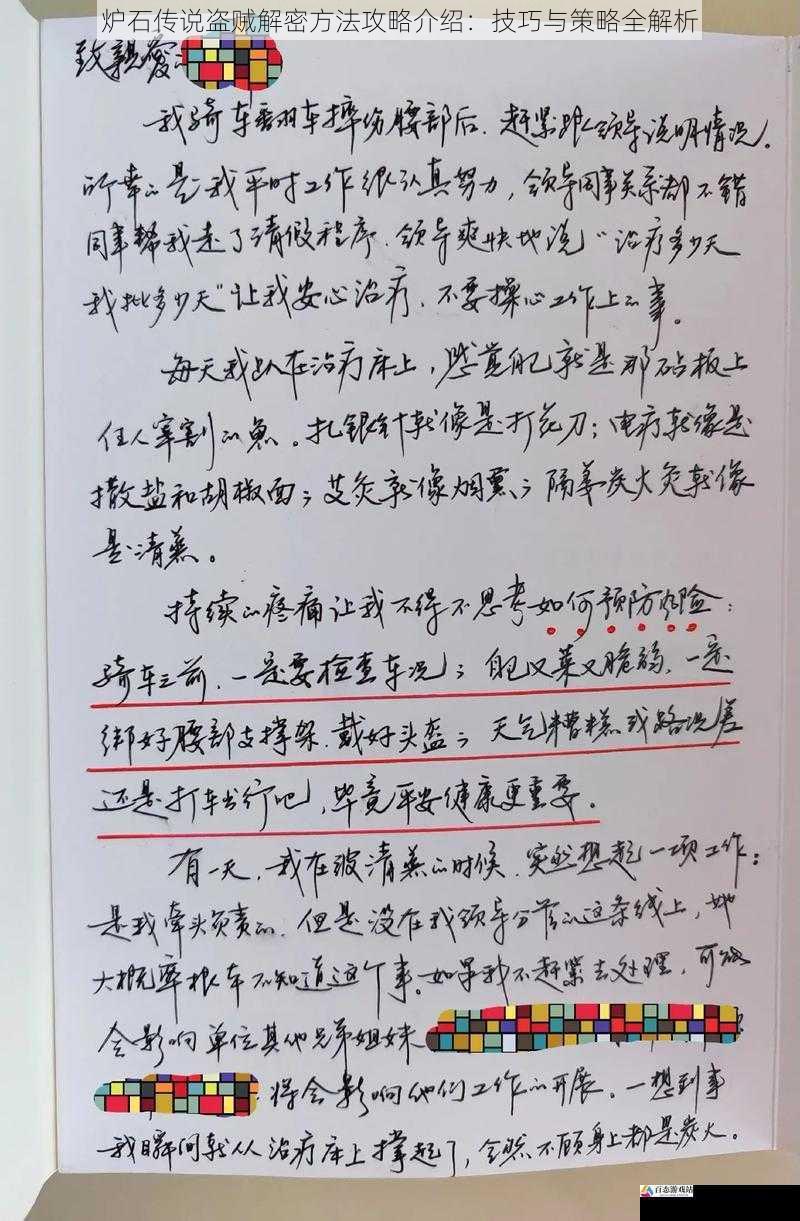 炉石传说盗贼解密方法攻略介绍：技巧与策略全解析
致亲爱
我骑车翻车摔伤腰部后，赶紧跟领导说明情况。
所幸的是我平时工作很认真努力，领导同事关系都不错
同事帮我走了请假程序，领导爽快地说“治疗多少天
我批多少天”让我安心治疗，不要操心工作上的事。
每天我趴在治疗床上，感觉自己就是那砧板上
任人宰割的鱼。扎银针就像是打花刀；电疗就像是
撒盐和胡椒面；艾灸就像烟熏；隔姜炭火灸就像
是清蒸。
持续的疼痛让我不得不思考如何预防风险：
骑车之前，一是要检查车况；自己又菜又脆弱，一定
绑好腰部支撑架，戴好头盔；天气糟糕或路况差
还是打车出行吧，毕竟平安健康更重要。
有一天，我在被清蒸的时候，突然想起一项工作：
是我牵头负责的，但是没在我领导分管的这条线上，她
大概率根本不知道这个事。如果我不赶紧去处理，可能
会影响单位其他兄弟姐妹
将会影响他们工作的开展。一想到事
我瞬间就从治疗床上撑起了，全然不顾身上都是炭火。
百态游戏站